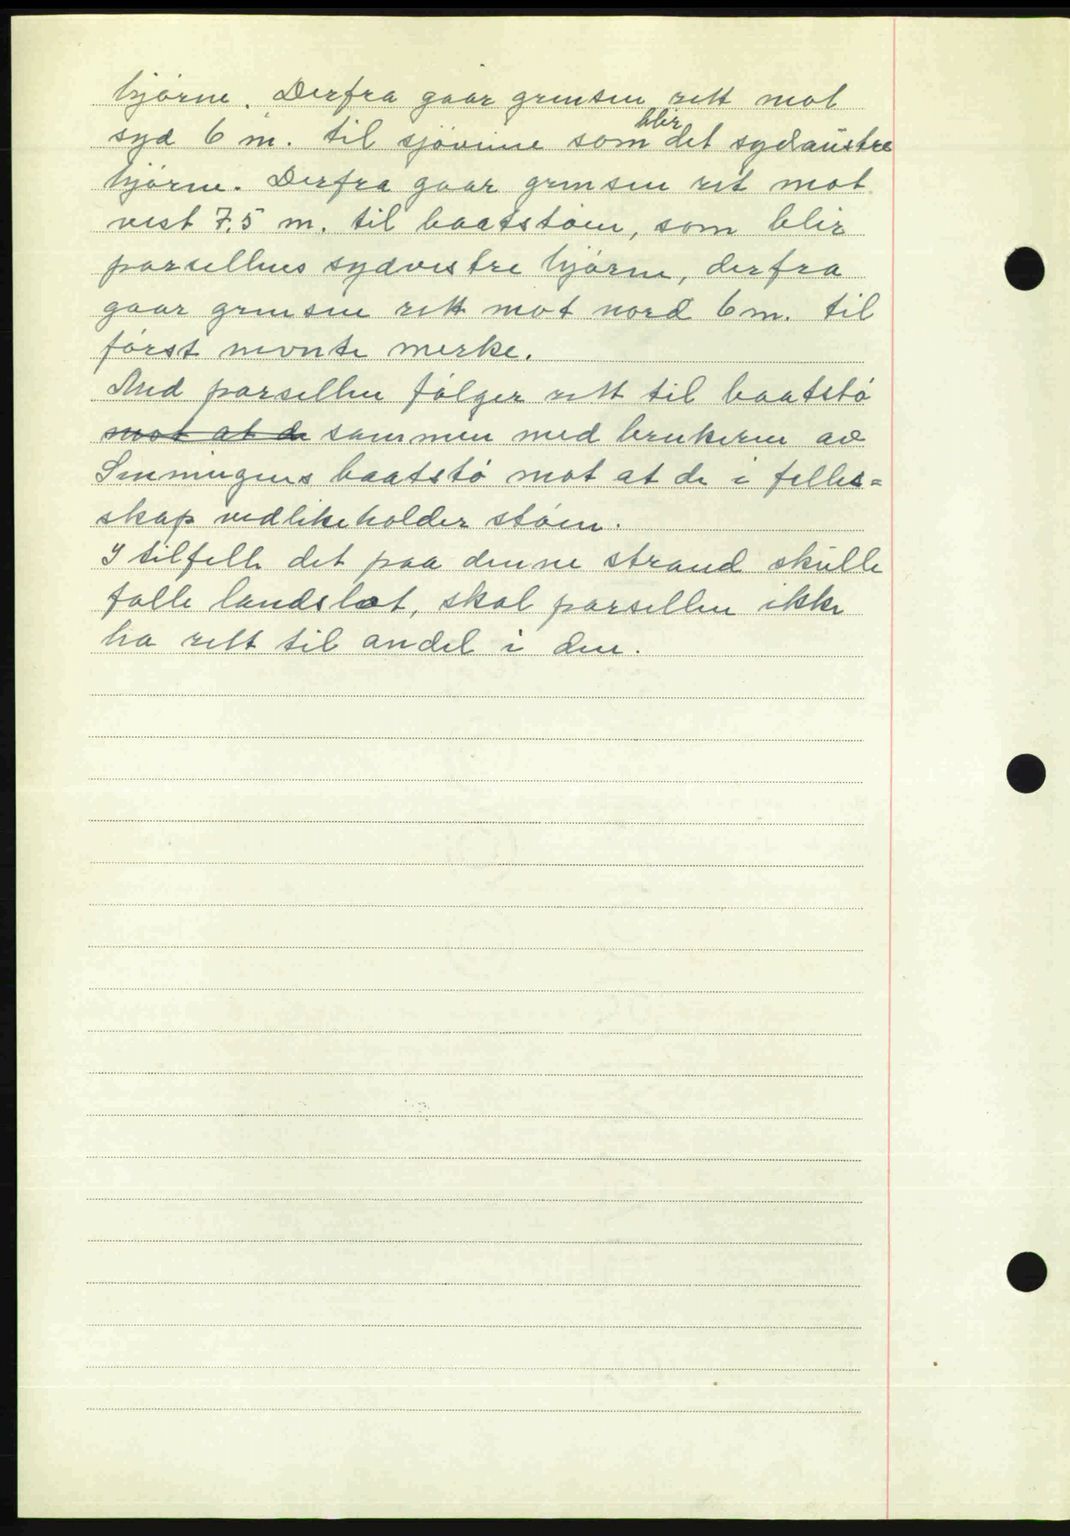 hjørne. Derfra gaar grensen rett mot
syd 6 m. til sjøvinne som blir det sydaustre
hjørne. Derfra gaar grensen ret mot
vest 7,5 m. til baatstøen, som blir
parsellens sydvestre hjørne, derfra
gaar grensen rett mot nord 6 m. til
først nevnte merke.
Med parsellen følger rett til baatstø
mot at de sammen med brukeren av
baatstø mot at de i felles=
skap vedlikeholder støen.
I tilfelle det paa denne strand skulle
falle landslot, skal parsellen ikke
ha rett til andel i den.